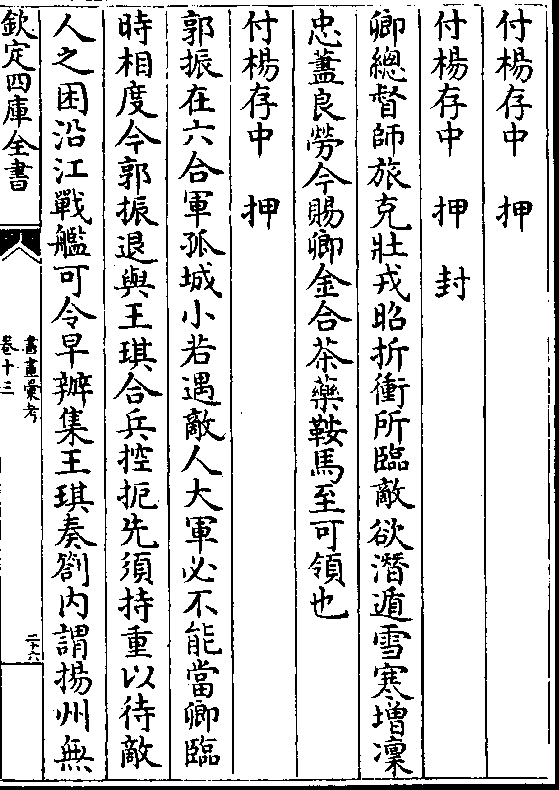 付楊存中　押
付楊存中　押　封
卿總督師旅克壯戎昭折衝所臨敵欲潛遁雪寒增凜
忠藎良勞今賜卿金合茶藥鞍馬至可領也
付楊存中　押
郭振在六合軍孤城小若遇敵人大軍必不能當卿臨
時相度令郭振退與王琪合兵控扼先須持重以待敵
人之困沿江戰艦可令早辦集王琪奏劄内謂揚州無
欽定四庫全書
書畫彙考
卷十三
二十六